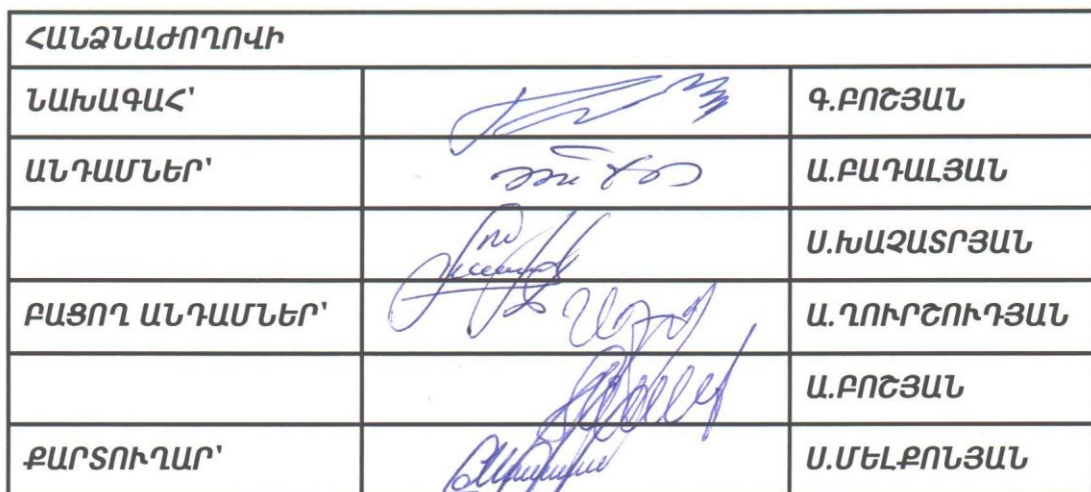 ՀԱՆՁՆԱԺՈՂՈՎԻ
ՆԱԽԱԳԱՀ՝ Գ.ԲՈՇՅԱՆ
ԱՆԴԱՄՆԵՐ՝ Ա.ԲԱԴԱԼՅԱՆ
Ս.ԽԱՉԱՏՐՅԱՆ
ԲԱՑՈՂ ԱՆԴԱՄՆԵՐ՝ Ա.ՂՈՒՐՇՈՒԴՅԱՆ
Ա.ԲՈՇՅԱՆ
ՔԱՐՏՈՒՂԱՐ՝ Ս.ՄԵԼՔՈՆՅԱՆ